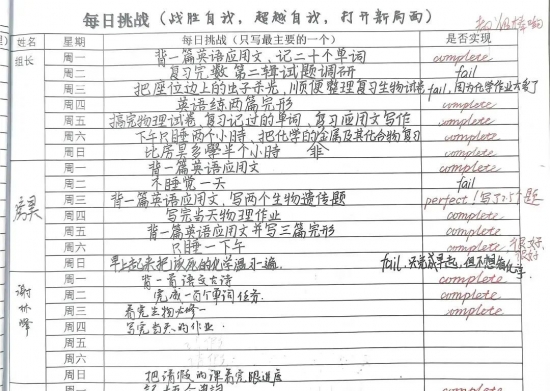 每日挑战（战胜自我，超越自我，打开新局面）
姓名 星期 每日挑战（只写最主要的一个） 是否实现
组长 周一 背一篇英语应用文、记二十个单词 complete
周二 复习完数第二辑试题调研 fail
周三 把座位边上的虫子杀光，顺便整理复习生物试卷 fail，因为化学作业太多了
周四 英语练两篇完形 complete
周五 搞完物理试卷、复习记过的单词、复习应用文写作 complete
周六 下午只睡两个小时，把化学的金属及其化合物复习 complete
周日 比房昊多學半个小时 complete
房昊 周一 背一篇英语应用文 complete
周二 不睡觉一天 fail
周三 背一篇英语应用文，写两个生物遗传题 perfect！写了
周四 写完当天物理作业 complete
周五 背一篇英语应用文并写三篇完形 complete
周六 只睡一下午 complete 很好，很好
周日 早上起来把该死的化学温习一遍 fail，只完成早起，但不想搞化学
谢 周一 背一首语文古诗 complete
周二 完成一百个单词任务 complete
周三 看完生物必修一 complete
周四 写完当天的作业
周五
周六
周日 把请假的课看完跟进度
周一 complete